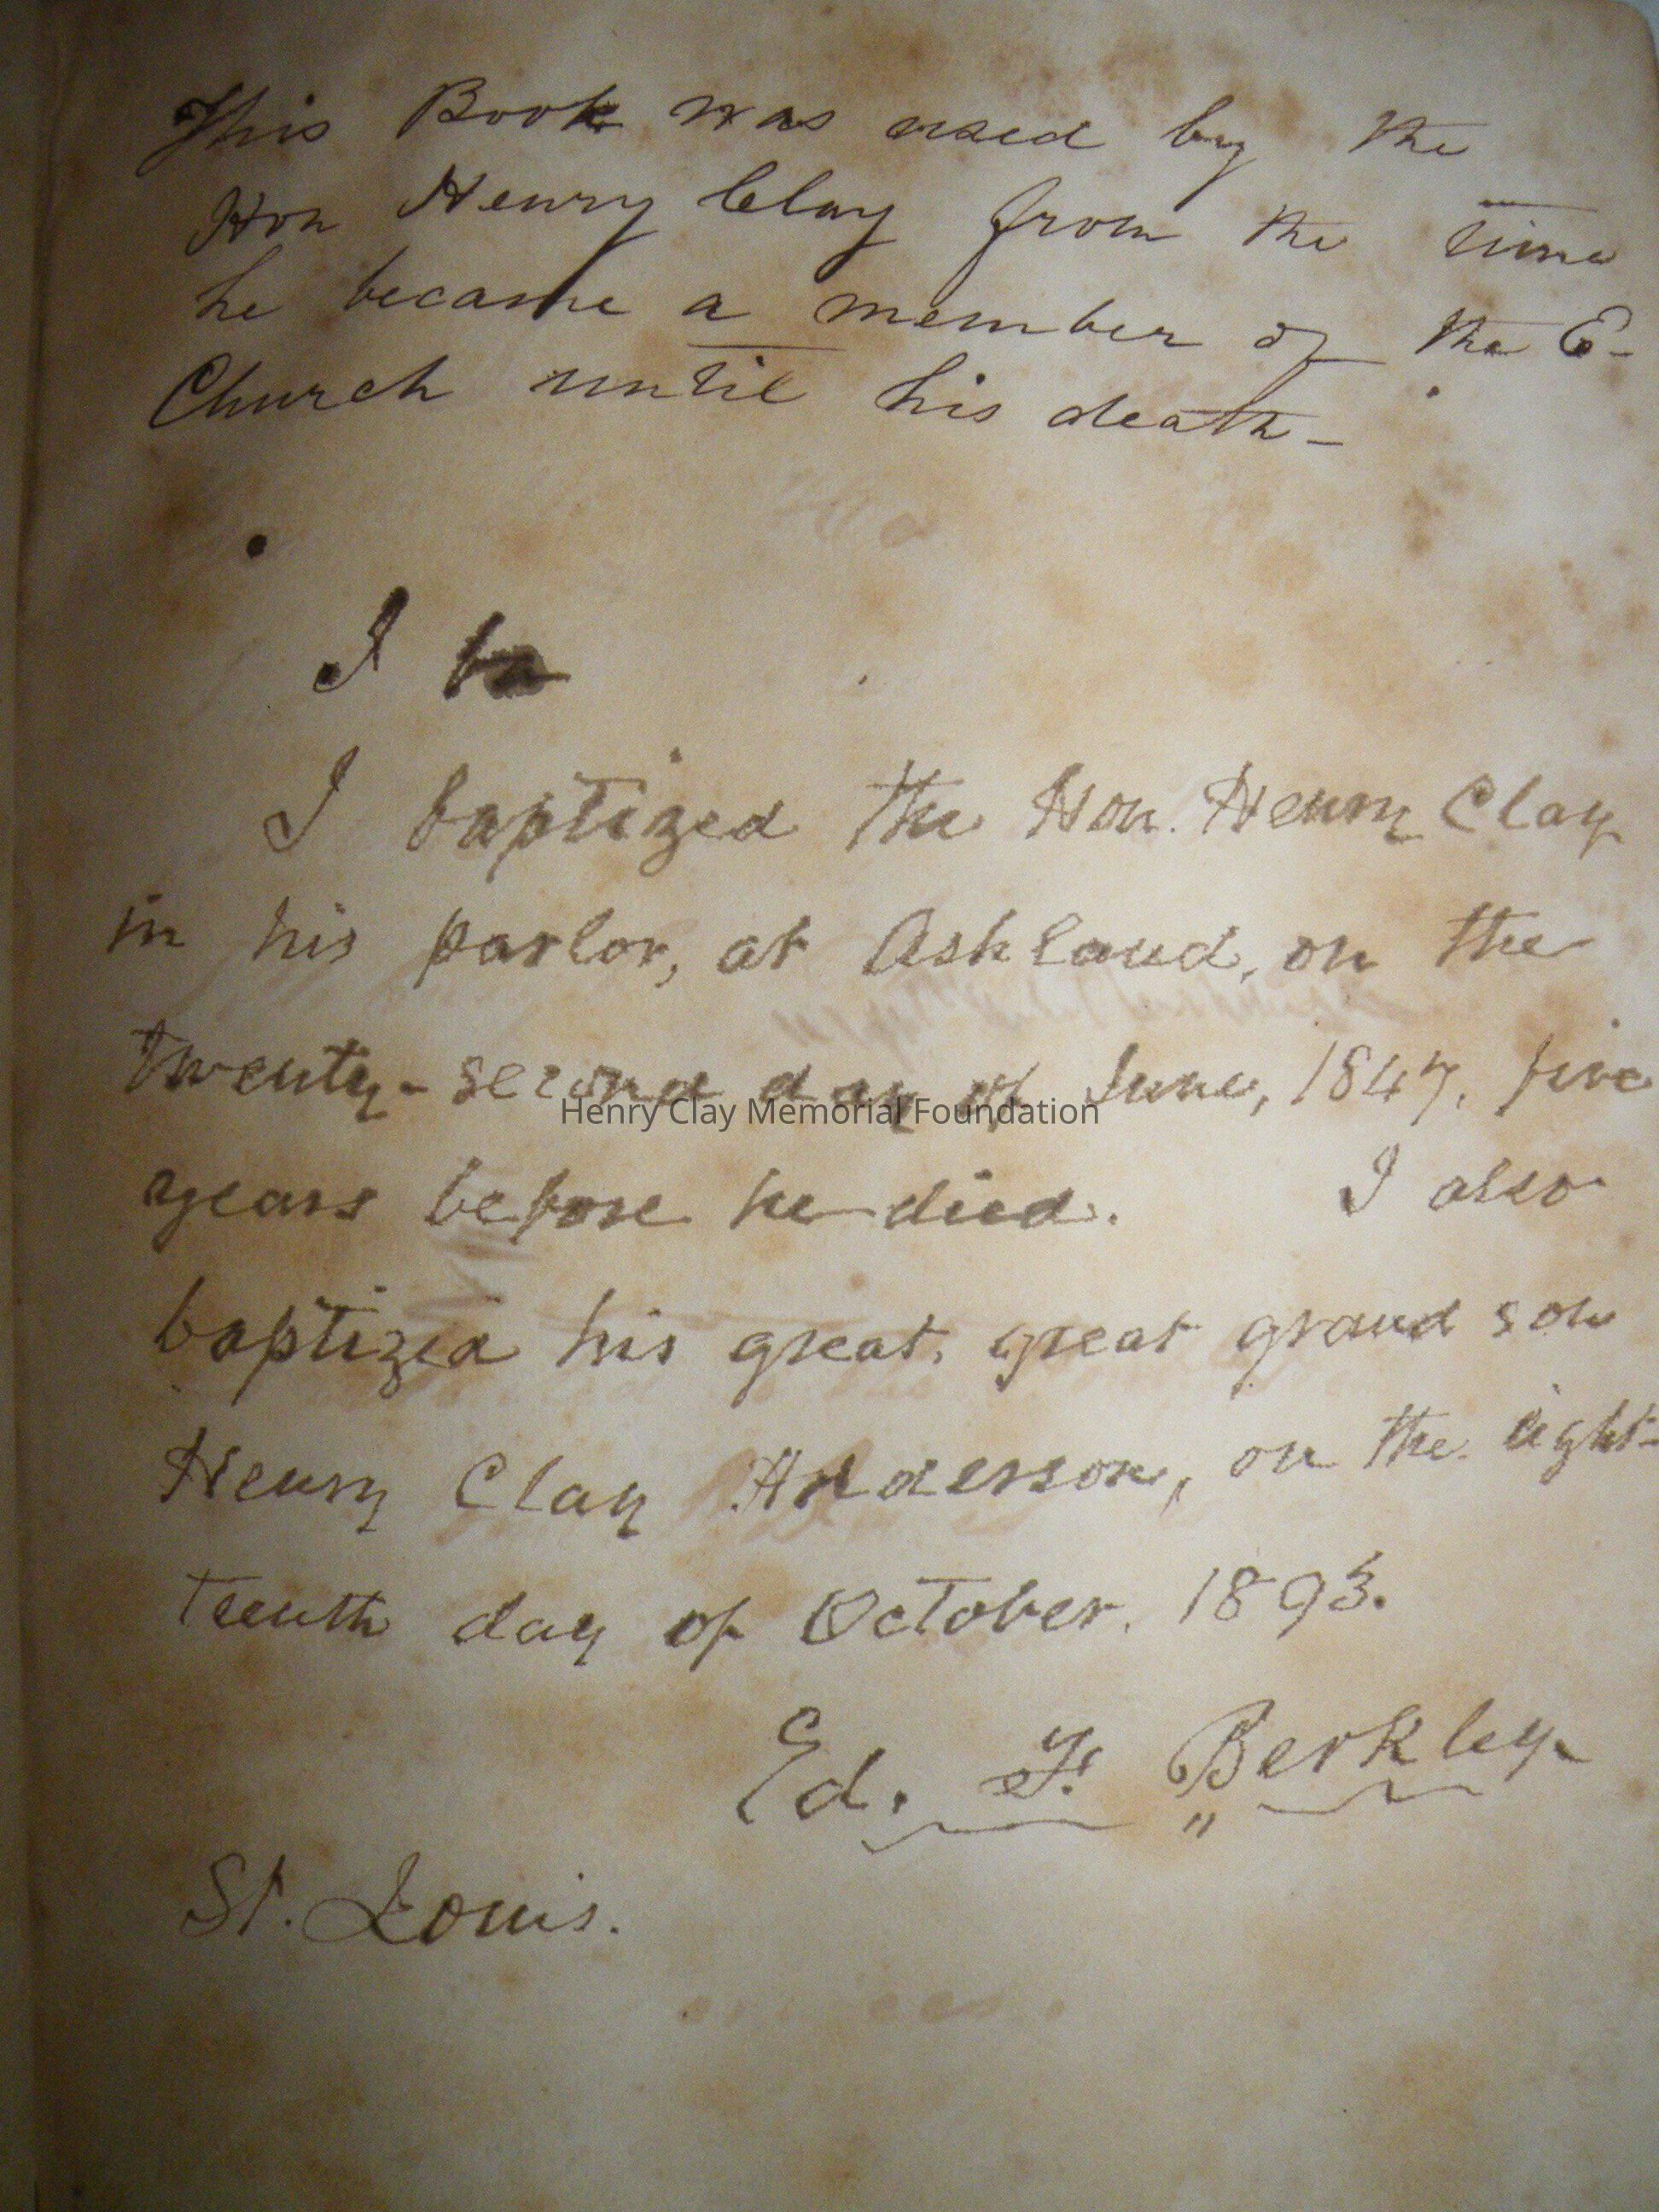 This Book was used by the
Hon Henry Clay from the time
he became a member of the E-
Church until his death-
I ba
I baptized the Hon. Henry Clay
in his parlor, at Ashland, on the
twenty-second day of June, 1847, five
years before he died. I also
baptized his great, great grand son
Henry Clay Anderson, on the eight-
teenth day of October, 1893.
Ed. F. Berkley
St. Louis.
Henry Clay Memorial Foundation